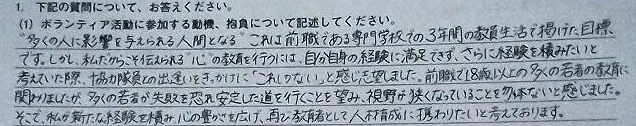 1. 下記の質問について、お答えください。
(1) ボランティア活動に参加する動機、抱負について記述してください。
"多くの人に影響を与えられる人間となる" これは前職である専門学校での3年間の教員生活で掲げた目標
です。しかし、私だからこそ伝えられる"心"の教育を行うには、自分自身の経験に満足できず、さらに経験を積みたいと
考えていた際、協力隊員との出逢いをきっかけに"これしかない"と感じ志望しました。前職で18歳以上の多くの若者の教育に
関わりましたが、多くの若者が失敗を恐れ安定した道を行くことを望み、視野が狭くなっていることを勿体ないと感じました。
そこで、私が新たな経験を積み、心の豊かさを広げ、再び教育者として人材育成に携わりたいと考えております。